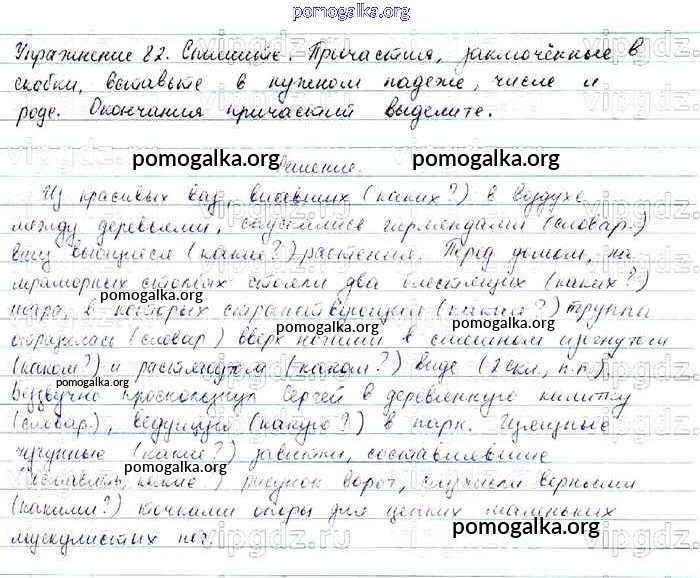 pomogalka.org
Упражнение 82. Спишите. Причастия, заключённые в
скобки, вставьте в нужном падеже, числе и
роде. Окончания причастий выделите.
pomogalka.org
pomogalka.org
Решение.
Из красивых ваз, висевших (каких?) в воздухе
между деревьями, спускались гирляндами (словар.)
вниз вьющиеся (какие?) растения. Перед домом, на
мраморных столбах стояли два блестящих (каких?)
pomogalka.org
шара, в которых странствующая (какая?) труппа
pomogalka.org
pomogalka.org
отразилась (словар.) вверх ногами в смешном изогнутом
(каком?) и растянутом (каком?) виде (2 скл., п.п.).
pomogalka.org
Беззвучно проскользнул Сергей в деревянную калитку
(словар.), ведущую (какую?) в парк.
чугунные (какие?) завитки, составлявшие
pomogalka.org
(составлять, какие?) рисунок ворот, служили верными
(какими?) точками опоры для цепких маленьких
pomogalka.org
мускулистых ног.